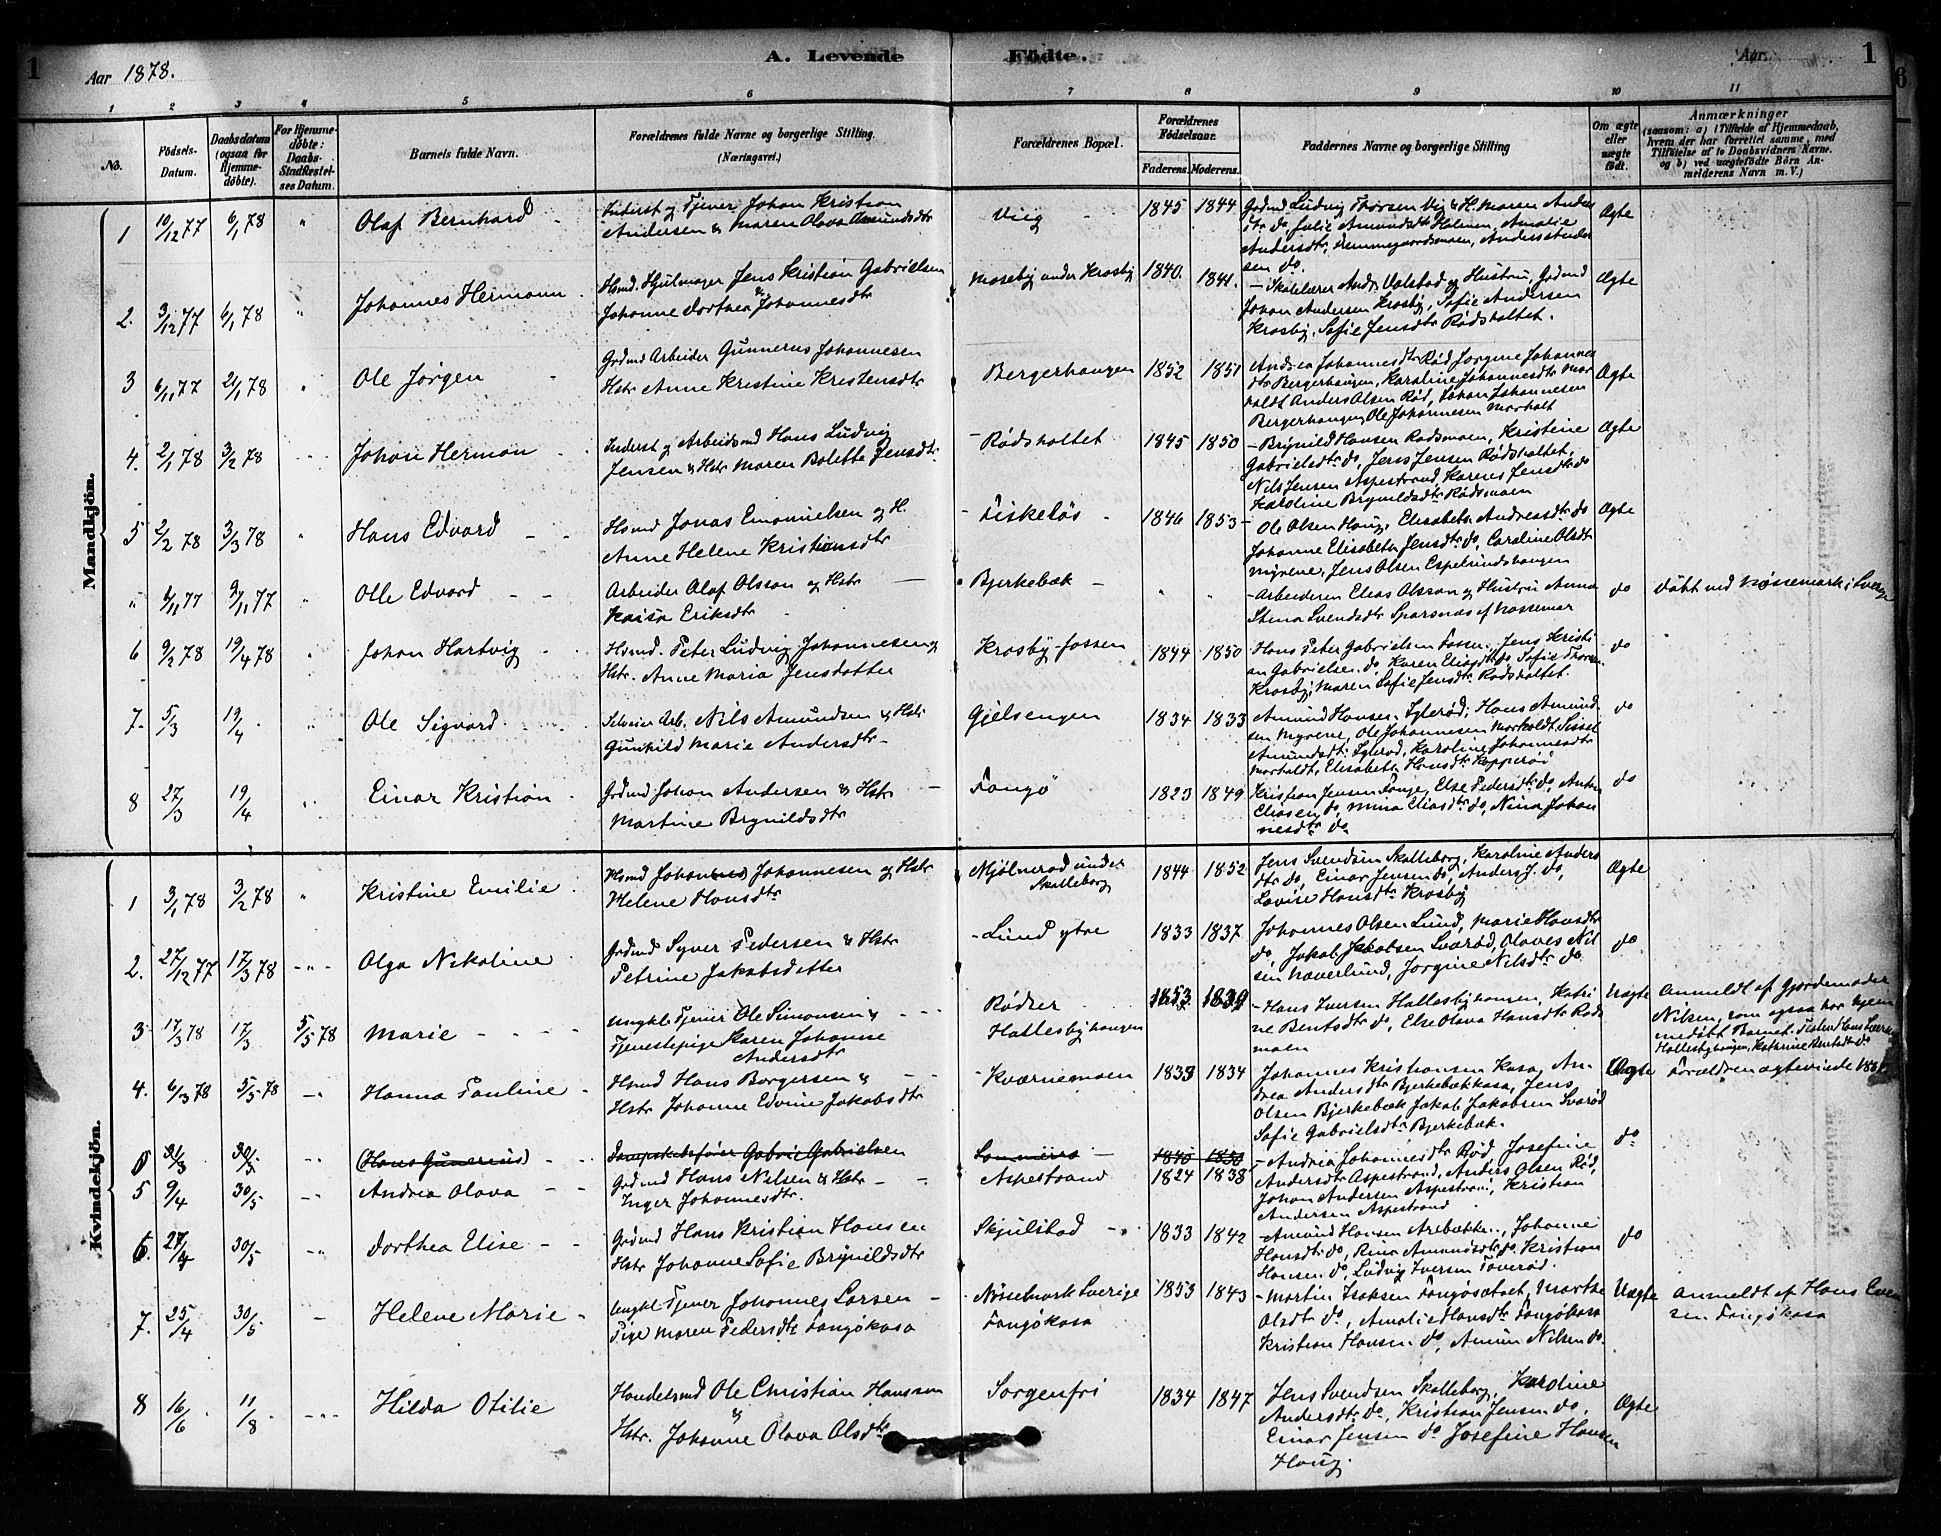 1
Aar 1878.
A. Levende Födte.
Aar
1
6
1 2 3 4 5 6 7 8 9 10 11
No.
Födsels-
Datum.
Daabsdatum
(ogsaa for
Hjemme-
döbte).
For Hjemme-
döbte:
Daabs-
Stadfæstel-
ses Datum.
Barnets fulde Navn.
Forældrenes fulde Navne og borgerlige Stilling.
(Næringsvei.)
Forældrenes Bopæl.
Forældrenes
Födselsaar.
Faderens. Moderens.
Faddernes Navne og borgerlige Stilling
Om ægte
eller
uægte
födt.
Anmærkninger
(saasom: a) i Tilfælde af Hjemmedaab,
hvem der har forrettet samme, med
Tilföielse af to Daabsvidners Navne.
og b) ved uægtefödte Börn An-
melderens Navn m. V.)
Mandkjön.
1 10/12 77 6/1 78 " Olaf Bernhard
Inderst og Tjener Johan Kristian
Andersen & Maren Olava Amundsdtr
Viig 1845 1844
Grdmd Ludvig Thorsen Vig & H. Maren Anders
dtr do, Julie Amundsdtr Holmen, Amalie
Andersdtr, Anders Ander
sen do.
Ægte
2. 3/12 77 6/1 78 " Johannes Hermann
Hsmd. Hjulmager Jens Kristian Gabrielsen
&
Johanne Dorthea Johannesdtr
Moseby under Krosby 1840. 1841.
- Skolelærer Andr. Valstad og Hustru, Grdmd
Johan Andersen Krosby, Sofie Andersen
Krosby, Sofie Jensdtr Rödsholtet.
Ægte
3 6/11 77 21/1 78 " Ole Jörgen
Grdmd Arbeider Gunnerus Johannesen
Hstr Anne Kristine Kristensdtr
Bergerhaugen 1852 1851
Andrea Johannesdtr Röd, Jorgine Johannes
dtr Bergerhaugen, Karoline Johannesdtr Mor
holdt Anders Olsen Röd, Johan Johannesen
Bergerhaugen, Ole Johannesen Morholt
Ægte
4. 2/1 78 3/2 78 Johan Herman
Inderst og Arbeidsmd Hans Ludvig
Jensen & Hstr Maren Bolette Jensdtr
- Rödsholtet 1845 1850
- Brynild Hansen Rodsmoen, Kristine
Gabrielsdtr do, Jens Jensen Rödsholtet,
Nils Jensen Aspestrand, Karens Jensdtr do
Karoline Brynildsdtr Rödsmoen
Ægte
5 2/2 78 3/3 78 " Hans Edvard
Hsmd Jonas Emanuelsen og H.
Anne Helene Kristiansdtr
- Fiskelös 1846 1853
- Ole Olsen Houg, Elisabeth Andreasdtr do
Johanne Elisabeth Jensdtr do, Caroline Olsdtr
Myrene, Jens Olsen Espelundshaugen
Ægte
" 6/11 77 9/11 77 " Olle Edvard
Arbeider Olaf Olsson og Hstr
Kaisa Eriksdtr
Bjerkebæk " "
- Arbeideren Elias Olsson og Hustru Anna
Stina Svendsdtr Sparsnæs af Nossemar
do
Döbt ved Nössemark i Sverige
6 9/2 78 19/4 78 " Johan Hartvig
Hsmd. Peter Ludvig Johannesen og
Hstr. Anne Maria Jensdatter
Krosby-fossen 1844 1850
Hans Peter Gabrielsen Fossen, Jens Kristi
an Gabrielsen do, Karen Eliasdtr do Sofie Thorsen
Krosby, Maren Sofie Jensdtr Rödsholtet.
do
7. 5/3 19/4 " Ole Sigvard
Arb. Nils Amundsen & Hstr
Gunhild Marie Andersdtr
Gjelsengen 1834 1833
Amund Hansen Iglerød, Hans Amund
sen Myrene, Ole Johannesen Morholdt Sissel
Amundsdtr Iglerød, Karoline Johannesdtr
Morholdt, Elisabeth Hansdtr Kopperöi
do
8 27/3 19/4 " Einar Kristian
Grdmd Johan Andersen & Hstr
Martine Brynildsdtr
Fangö 1823 1849
Kristian Jensen Fange, Else Pedersdtr do, Anton
Eliasen do, Mina Eliasdtr do, Nina Johan
nesdtr do
do
Kvindekjön.
1 3/1 78 3/2 78 " Kristine Emilie
Hsmd Johannes Johannesen og Hstr
Helene Hansdtr
Mjölnerod under
Skolleborg 1844 1852
Jens Svendsen Skolleborg, Karoline Anders
dtr do, Einar Jensen do, Anders J. do,
Lovise Hansdtr Krosby
Ægte
2. 27/12 77 17/3 78 Olga Nikoline
Grdmd Syver Pedersen & Hstr
Petrine Jakobsdatter
- Lund ytre 1833 1837
Johannes Olsen Lund, Marie Hansdtr
do, Jakob Jakobsen Svaröd, Olaves Nil
sen Naverlund, Jorgine Nilsdtr do
do
3 17/3 78 17/3 5/5 78 Marie
Ungkl. Tjener Ole Simonsen &
Tjenestepige Karen Johanne
Andersdtr
Rödser
Hallesbyhaugen 1853 1839
- Hans Iversen Hallesbyhaugen, Katri
ne Bentsdtr do, Else Olava Hansdtr Rods
moen
Uægte
Anmeldt af Gjordemoder
Nilsen, som ogsaa har hjem
medöbt Barnet. Tilsted Hans Iversen
Hallesbyhaugen, Kathrine Bentsdtr do
Forældrene ægteviede 188
4. 6/3 78 5/5 78 Hanna Pauline
Hsmd Hans Borgersen &
Hstr Johanne Edvine Jakobsdtr
- Kværnemoen 1839 1834
Johannes Kristiansen Kasa, An-
drea Andersdtr Bjerkebækkasa, Jens
Olsen Bjerkebæk Jakob Jakobsen Svaröd
Sofie Gabrielsdtr Bjerkebæk.
Ægte
(Hans Gunerius)
Dampskibsfører Gabriel Gabrielsen
1845 1850
5 9/4 30/5 Andrea Olava
Grdmd Hans Nilsen & Hstr
Inger Johannesdtr.
Aspestrand 1824 1838
- Andrea Johannesdtr Röd, Josefine
Andersdtr Aspestrand, Anders Olsen Röd,
Johan Andersen Aspestrand, Kristian
Andersen Aspestrand
do
6. 27/4 30/5 Dorthea Elise
Grdmd Hans Kristian Hansen
Hstr Johanne Sofie Brynildsdtr
Skjulstad 1833 1842
- Amund Hansen Arebækken, Johanne
Hansdtr do, Rina Amundsdtr do, Kristian
Hansen do, Ludvig Iversen Toveröd.
do
7. 25/4 30/5 Helene Marie
Ungkl Tjener Johannes Larsen
Pige Maren Pedersdtr Fangökasa
Nössemark Sverige
Fangökasa 1853 1843
- Martin Isaksen Fangösætaet, Marthe
Olsdtr do, Amalie Hansdtr Fangökasa
Kristian Hansen do, Amund Nilsen do.
Uægte
Anmeldt af Hans Even
sen Fangökasa
8 16/6 11/8 Hilda Otilie
Handelsmd Ole Christian Hansson
&
Hstr. Johanne Olava Olsdtr
Sorgenfri 1834 1847
Jens Svendsen Skolleborg, Karoline
Andersdtr do, Kristian Jensen do,
Einar Jensen do Josefine Hansen
Houg.
Ægte